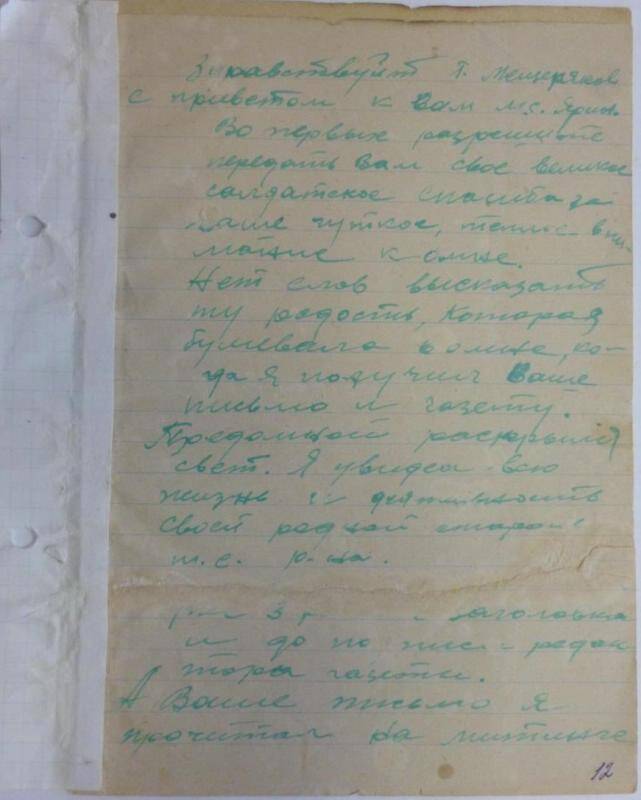 Здравствуйт т. Мещеряков
с приветом к Вам мл.с.
Во первых разрешите
передать Вам свое великое
солдатское спасибо за
ваше чуткое, теплое вни-
мание к мне.
Нет слов высказать
ту радость, которая
бушевала в мне, ко-
да я получил Ваше
письмо и газету.
Предомной раскрылся
свет. Я увидел всю
жизнь и деятельность
своей родной
т.е. р-на.
3 заголовка
и до подписи редак
тора газеты.
А Ваше письмо я
прочитал на митинге
12